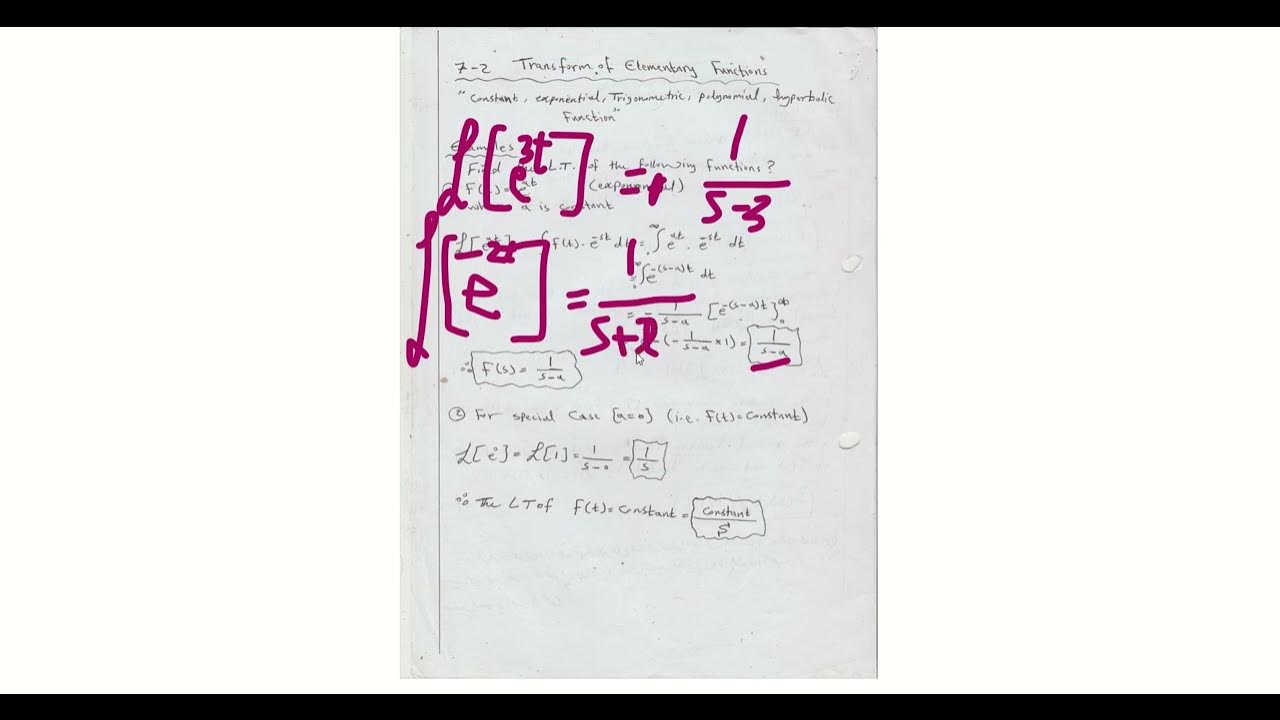 7-2 Transform of Elementary Functions
"Constant, exponential, Trigonometric, polynomial, hyperbolic
Function"
Examples
Find L.T. of the following Functions?
ℒ[e^{3t}] = 1/(s-3)
(exponential)
a is constant
F(t). e^{-st} dt = ∫_0^∞ e^{at}. e^{-st} dt
= ∫_0^∞ e^{-(s-a)t} dt
ℒ[e^{-2t}] = 1/(s+2)
= - 1/(s-a) [e^{-(s-a)t}]_0^∞
(- 1/(s-a) ×1) = 1/(s-a)
∴ F(s) = 1/(s-a)
② For special Case [a=0] (i.e. F(t)=Constant)
ℒ[e^0] = ℒ[1] = 1/(s-0) = 1/s
∴ The LT of F(t)=Constant = Constant/S